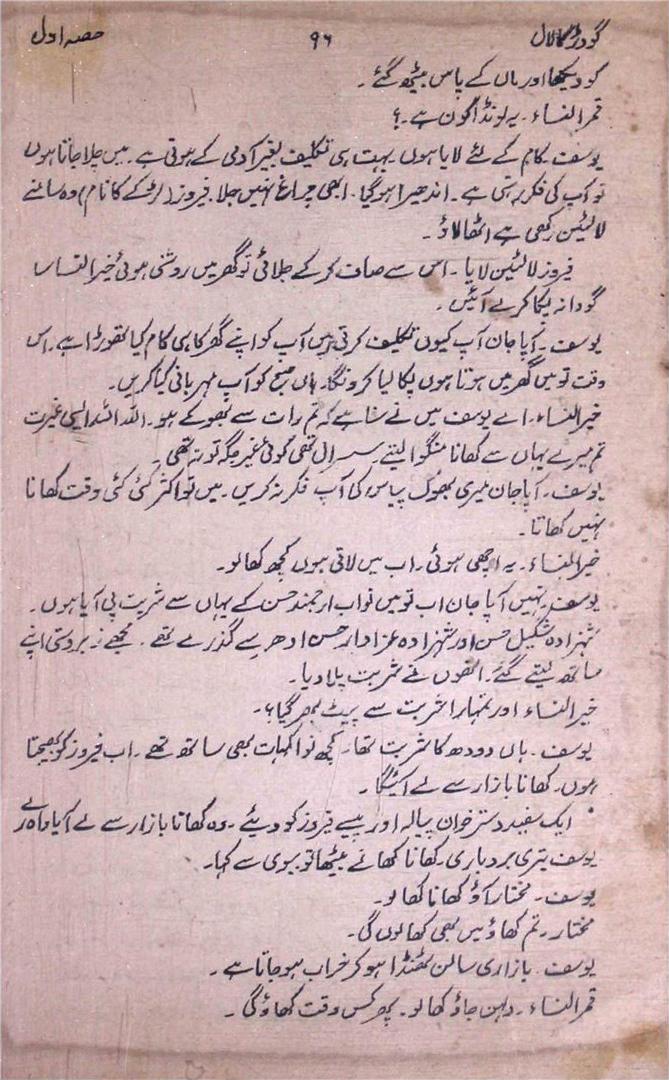 گودڑ کا لال ۹۶ حصہ اول
کو دیکھا اور ماں کے پاس بیٹھ گئے ۔
قمر النساء ۔ یہ لونڈا کون ہے ۔ ؟
یوسف ۔ کام کے لئے لایا ہوں بہت ہی تکلیف بغیر آدمی کے ہوتی ہے ۔ میں چلا جاتا ہوں
تو آپ کی فکر رہتی ہے ۔ اندھیرا ہو گیا ۔ ابھی چراغ نہیں جلا ۔ فیروز (لڑکے کا نام) وہ سامنے
لالٹین رکھی ہے اٹھا لاؤ ۔
فیروز لالٹین لایا ۔ اس سے صاف کر کے جلائی تو گھر میں روشنی ہوئی خیر النسا سا
گودانہ پکا کر لے آئیں ۔
یوسف ۔ آپا جان آپ کیوں تکلیف کرتی ہیں آپ کو اپنے گھر کا ہی کام کیا تھوڑا ہے ۔ اس
وقت تو میں گھر میں ہوتا ہوں پکا لیا کرونگا ۔ ہاں صبح کو آپ مہربانی کیا کریں ۔
خیر النساء ۔ اے یوسف میں نے سنا ہے کہ تم رات سے بھوکے ہو ۔ اللہ اللہ ایسی غیرت
تم میرے یہاں سے کھانا منگوا لیتے ۔ سسرال تھی کوئی غیر جگہ تو نہ تھی ۔
یوسف ۔ آپا جان میری بھوک پیاس کی آپ فکر نہ کریں ۔ میں تو اکثر کئی کئی وقت کھانا
نہیں کھاتا ۔
خیر النساء ۔ یہ اچھی ہوئی ۔ اب میں لاتی ہوں کچھ کھا لو ۔
یوسف ۔ نہیں آپا جان اب تو میں نواب ارجمند حسن کے یہاں سے شربت پی آیا ہوں ۔
شہزادہ شکیل حسن اور شہزادہ عزادار حسن ادھر سے گذرے تھے ۔ مجھے زبردستی اپنے
ساتھ لیتے گئے ۔ انھوں نے شربت پلا دیا ۔
خیر النساء اور تمہارا شربت سے پیٹ بھر گیا ؟ ۔
یوسف ۔ ہاں دودھ کا شربت تھا ۔ کچھ فواکہات بھی ساتھ تھے ۔ اب فیروز کو بھیجتا
ہوں ۔ کھانا بازار سے لے آئیگا ۔
ایک سفید دسترخوان پیالہ اور پیسے فیروز کو دیئے ۔ وہ کھانا بازار سے لے آیا واہ رے
یوسف تیری بردباری ۔ کھانا کھانے بیٹھا تو بیوی سے کہا ۔
یوسف ۔ مختار آؤ کھانا کھا لو ۔
مختار ۔ تم کھاؤ میں بھی کھا لوں گی ۔
یوسف ۔ بازاری سالن ٹھنڈا ہو کر خراب ہو جاتا ہے ۔
قمر النساء ۔ دلہن جاؤ کھا لو ۔ پھر کس وقت کھاؤ گی ۔